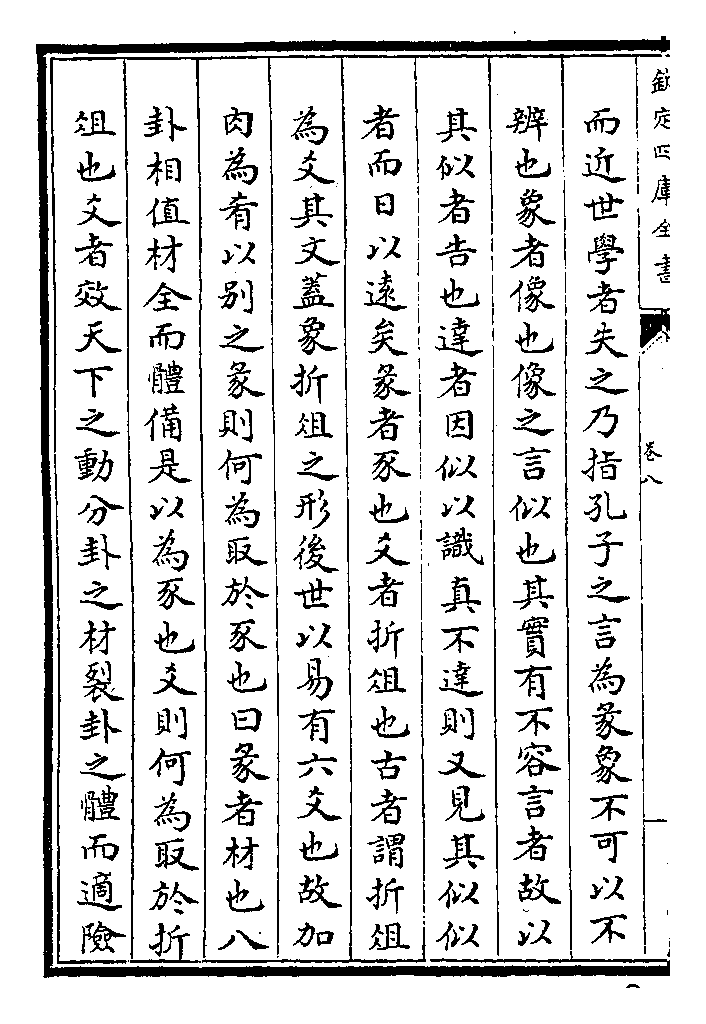 欽定四庫全書
卷八
而近世學者失之乃指孔子之言為彖象不可以不
辨也象者像也像之言似也其實有不容言者故以
其似者告也達者因似以識真不達則又見其似似
者而日以遠矣彖者豕也爻者折俎也古者謂折俎
為爻其文蓋象折俎之形後世以易有六爻也故加
肉為肴以别之彖則何為取於豕也曰彖者材也八
卦相值材全而體備是以為豕也爻則何為取於折
俎也爻者效天下之動分卦之材裂卦之體而適險